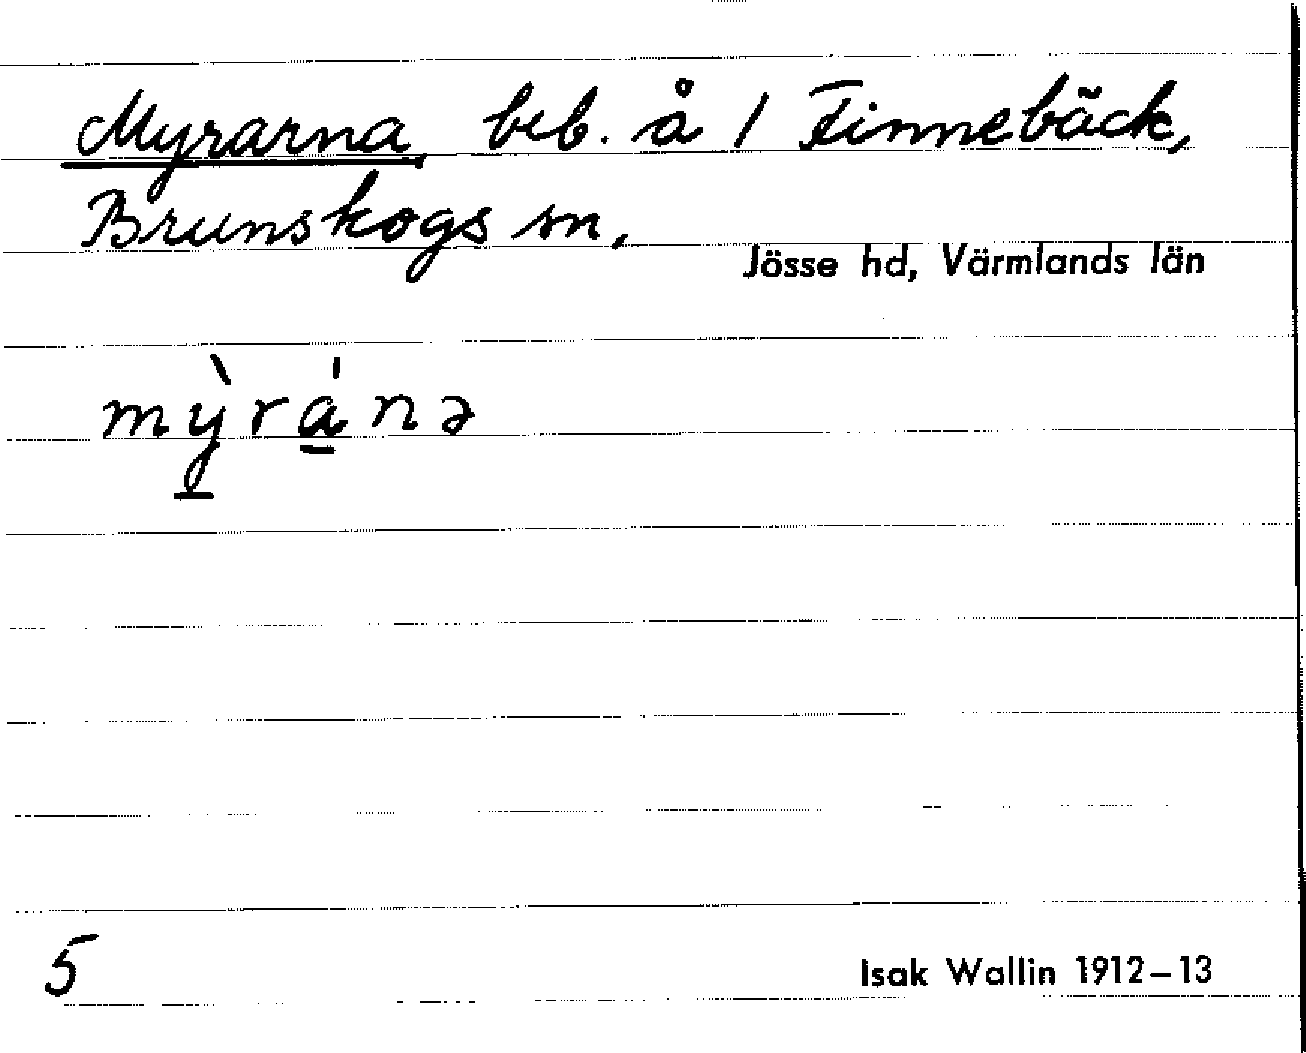 Myrarna, beb. å / Finnebäck,
Brunskogs sn,
Jösse hd, Värmlands län
mỳ̱rá̱nə
5
Isak Wallin 1912–13